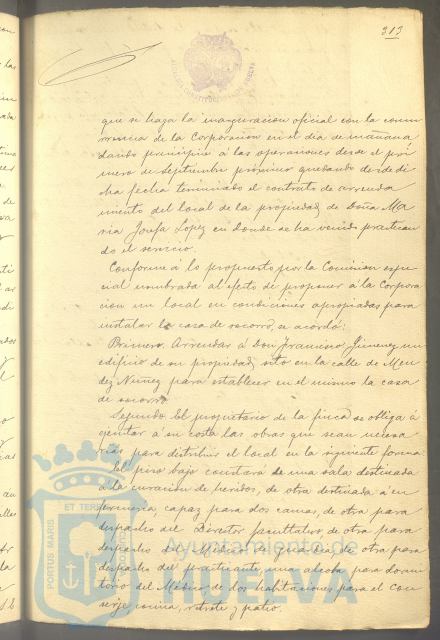 313
que se haga la inauguración oficial con la concu
rrencia de la Corporación en el dia de mañana
dando principio á las operaciones desde el pri
mero de Septiembre próximo quedando desde di
cha fecha terminado el contrato de arrenda
miento del local de la propiedad de Doña Ma
ria Josefa López en donde se ha venido practican
do el servicio.
Conforme á lo propuesto por la Comisión espe
cial nombrada al efecto de proponer á la Corpora
cion un local en condiciones apropiadas para
instalar la casa de socorro, se acordó:
Primero. Arrendar á Don Francisco Jimenez un
edificio de su propiedad, sito en la calle de Men
dez Nuñez para establecer en el mismo la casa
de socorro.
Segundo. El propietario de la finca se obliga á
ejecutar á su costa las obras que sean necesa
rias para distribuir el local en la siguiente forma:
El piso bajo constará de una sala destinada
á la curación de heridos, de otra destinada á en
fermeria capaz para dos camas, de otra para
despacho del Director facultativo, de otra para
despacho del Médico de guardia, de otra para
despacho del practicante, una alcoba para dormi
torio del Médico, de dos habitaciones para el con
serje, cocina, retrete y patio.
PORTUS MARIS
ET TERRAE
CUSTODIA
Ayuntamiento de
HUELVA